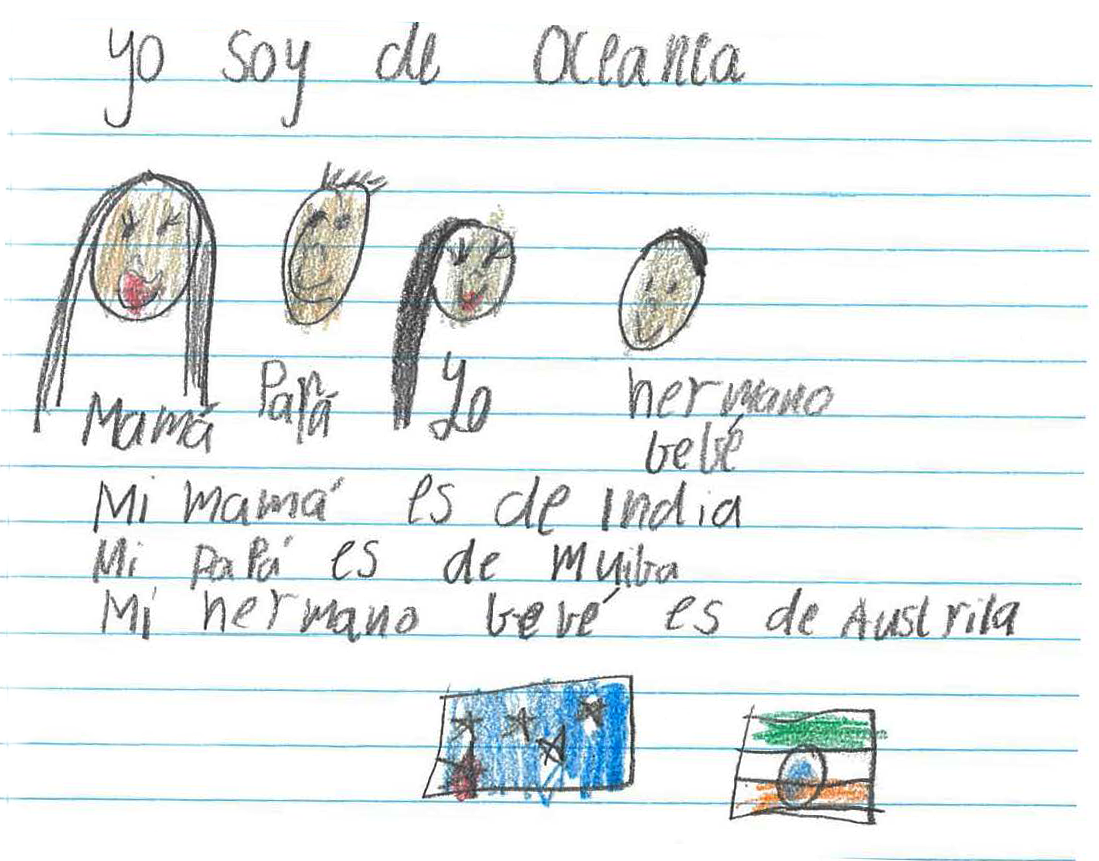 yo soy de Oceania
Mamá Papá Yo hermano
bebé
Mi mamá es de India
Mi papá es de
Mi hermano bebé es de Austrila